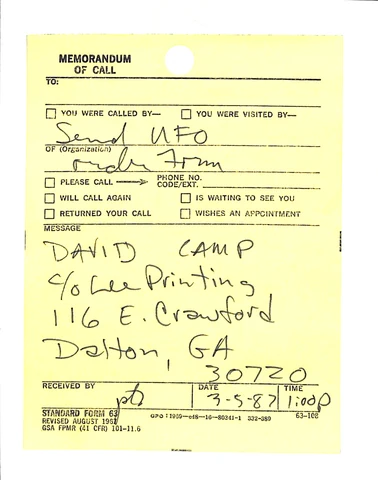 MEMORANDUM
OF CALL
TO:
YOU WERE CALLED BY— YOU WERE VISITED BY—
Send UFO
OF (Organization)
order Form
PLEASE CALL PHONE NO. CODE/EXT.
WILL CALL AGAIN IS WAITING TO SEE YOU
RETURNED YOUR CALL WISHES AN APPOINTMENT
MESSAGE
DAVID CAMP
c/o Lee Printing
116 E. Crawford
Dalton, GA
30720
RECEIVED BY DATE TIME
3-5-87 1:00p
STANDARD FORM 63
REVISED AUGUST
GSA FPMR (41 CFR) 101-11.6
63-108